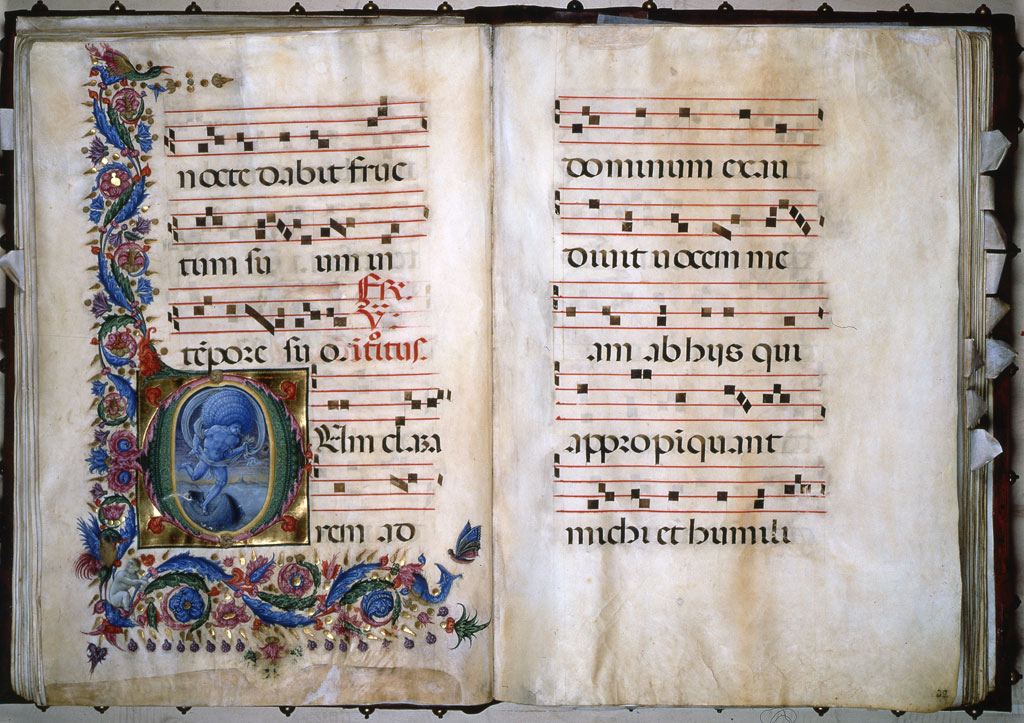 nocte dabit fruc
tum su um in
Fr.
V.
tēpore su o. itoitus.
DUm clama
rem ad
dominum exau
diuit uocem me
am ab hijs qui
appropīquant
michi et humili